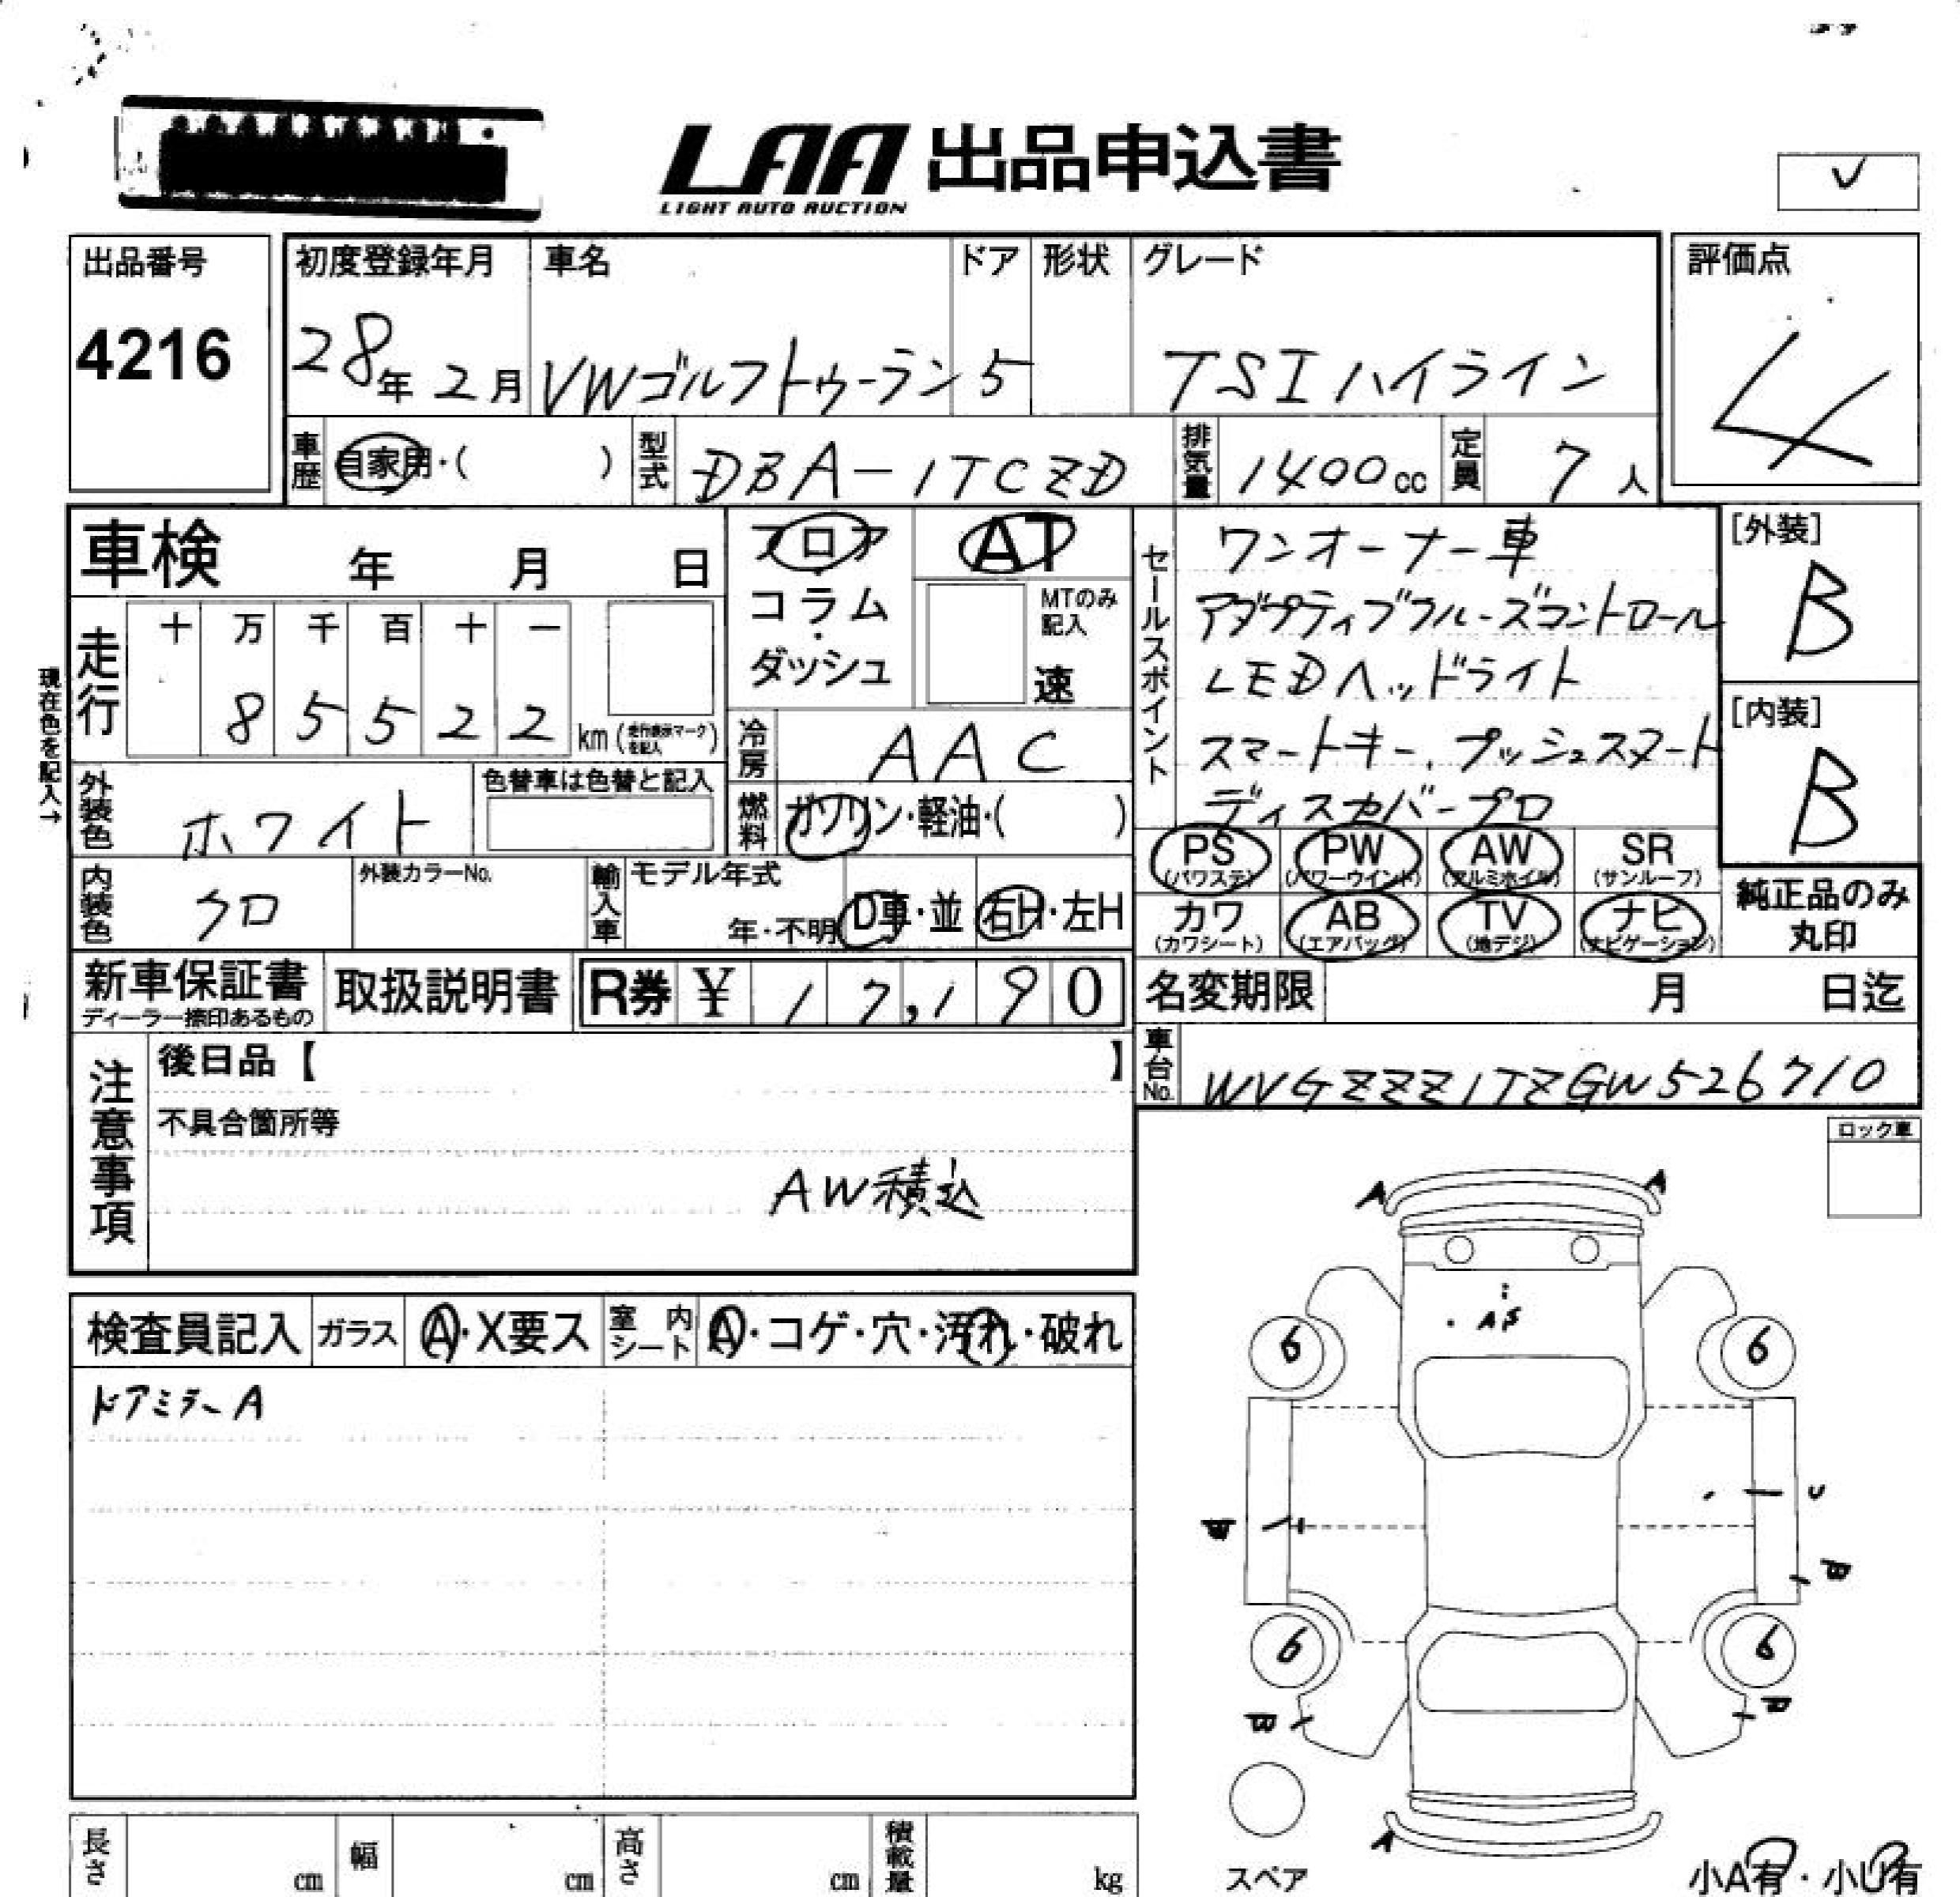 LAA 出品申込書
LIGHT AUTO AUCTION
✓
出品番号
4216
初度登録年月
28年2月
車名
VWゴルフトゥーラン
ドア
5
形状
グレード
TSIハイライン
評価点
4
車歴
自家用・( )
型式
DBA-1TCZD
排気量
1400cc
定員
7人
車検 年 月 日
フロア
・
コラム
・
ダッシュ
AT
MTのみ
記入
速
セールスポイント
ワンオーナー車
アダプティブクルーズコントロール
LEDヘッドライト
スマートキー、プッシュスタート
ディスカバープロ
[外装]
B
[内装]
B
現在色を記入→
走行
十 万 千 百 十 一
8 5 5 2 2 km (走行表示マークを記入)
冷房
AAC
外装色
ホワイト
色替車は色替と記入
燃料
ガソリン・軽油・( )
内装色
クロ
外装カラーNo.
輸入車
モデル年式
年・不明
D車・並
右H・左H
PS
(パワステ)
PW
(パワーウインド)
AW
(アルミホイル)
SR
(サンルーフ)
カワ
(カワシート)
AB
(エアバッグ)
TV
(地デジ)
ナビ
(ナビゲーション)
純正品のみ
丸印
新車保証書
ディーラー捺印あるもの
取扱説明書
R券 ¥ 17,190
名変期限 月 日迄
車台No.
WVGZZZ1TZGW526710
注意事項
後日品【 】
不具合箇所等
AW積込
ロック車
検査員記入
ガラス
A・X要ス
室内シート
A・コゲ・穴・汚れ・破れ
ドアミラーA
A A
AS
6 6
U
B
6 6
A
長さ cm
幅 cm
高さ cm
積載量 kg
スペア
小A有・小U有